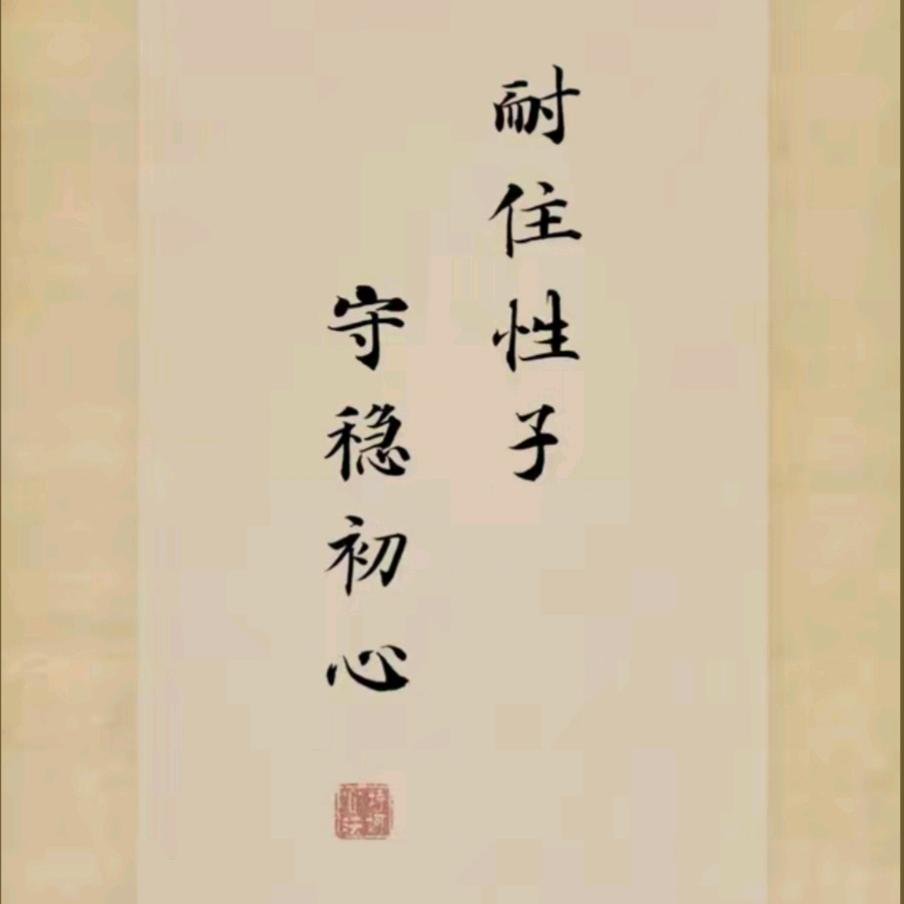 耐住性子
守稳初心